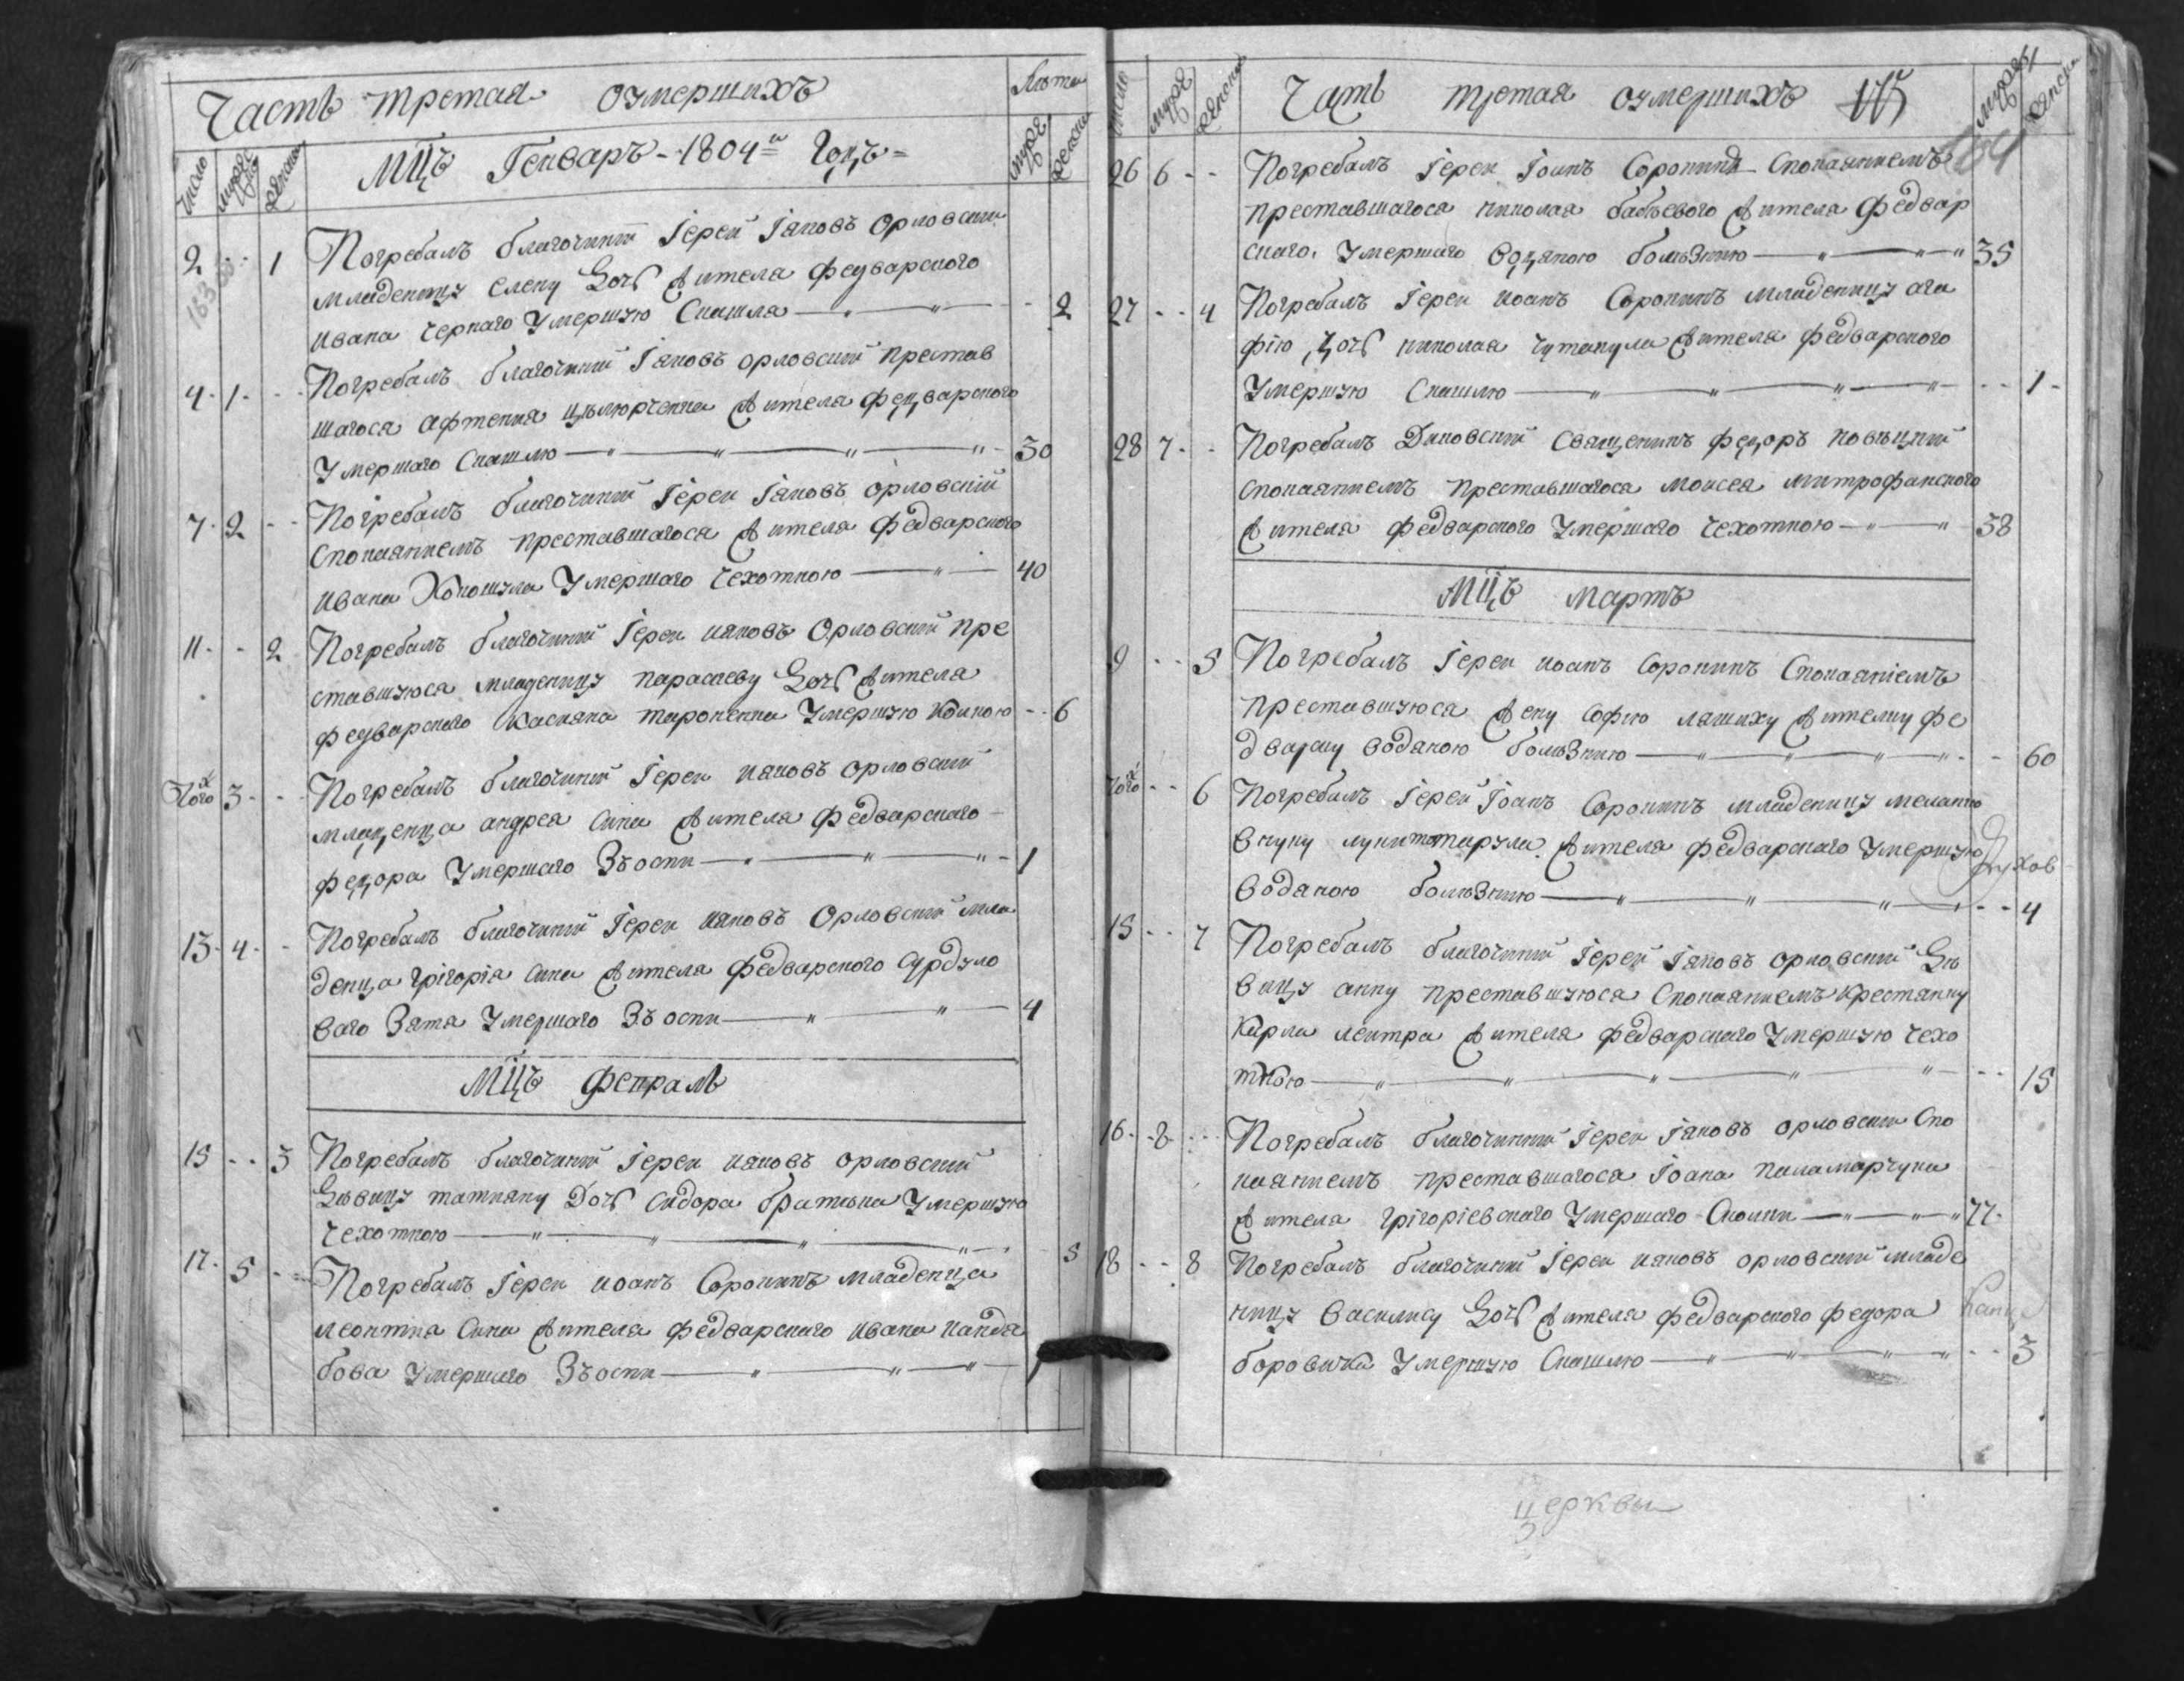 Часть третая оумершихъ
Лѣта
число мужеска женска
МЦЪ Генваръ - 1804и Годъ =
мужеска женска
2 1 Погребалъ благочинии Іереи Іяковъ Орловскии
младеницу Елену Дочь Жителя Федварского
Ивана Черпаго Умершую Скашля 2
4 1 Погребалъ благочинии Іяковъ орловскии престав
шагося Афтения Жителя федварского
Умершаго Скашлю 30
7 2 Погребалъ благочинии Іереи Іяковъ орловскіи
Спокаяниемъ преставшагося Жителя Федварского
Ивана Умершаго Чехоткою 40
11 2 Погребалъ благочинии Іереи ияковъ Орловскии пре
ставшуюся младеницу параскеву Дочь Жителя
федварского Касияна тароненка Умершую 6
Того 3 Погребалъ благочинии Іереи ияковъ орловскии
младенца андрея сина Жителя Федварского
федора Умершаго Зъоспи 1
13 4 Погребалъ благочинии Іереи ияковъ Орловскии мла
денца Грігорія сина Жителя Федварского Сурдуло
ваго Зятя Умершаго Зъоспи 4
МЦЪ Февраль
15 3 Погребалъ благочинии Іереи ияковъ орловскии
Дѣвицу татияну Дочь Сидора Умершую
Чехоткою 5
17 5 Погребалъ Іереи иоанъ Соронинъ младенца
леонтия сина Жителя Федварского ивана канда
бова Умершаго Зъоспи 1
число мужеска женска
Часть третая оумершихъ
мужеска женска
26 6 Погребалъ Іереи Іоанъ Соронинъ Спокаяниемъ
преставшагося николая бабъевого Жителя Федвар
скаго Умершаго Водяною болѣзнию 35
27 4 Погребалъ Іереи иоанъ Соронинъ младеницу ага
фію Дочь николая Жителя Федварского
Умершую Скашлю 1
28 7 Погребалъ Диковскии Священикъ федоръ
спокаяниемъ преставшагося моисея митрофанского
Жителя Федварского Умершаго Чехоткою 38
МЦЪ мартъ
9 5 Погребалъ Іереи иоанъ Соронинъ Спокаяніемъ
преставшуюся Жену Софию ляшиху Жителку фе
дварску водяною болѣзнию 60
Того 6 Погребалъ Іереи Іоанъ Соронинъ младеницу меланию
внуку Жителя Федварского Умершую
Водяною болѣзнию 4
15 7 Погребалъ благочинии Іереи Іяковъ орловскии Дѣ
вицу анну преставшуюся Спокаяниемъ крестянку
Карла Жителя Федварского Умершую Чехо
ткою 15
16 8 Погребалъ благочинии Іереи Іяковъ орловскии Спо
каяниемъ преставшагося Іоана паламарчука
Жителя Грігоріевского Умершаго 77
18 8 Погребалъ благочинии Іереи ияковъ орловскии младе
ницу василису Дочь Жителя Федварского Федора
боровика Умершую Скашлю 3
церквы